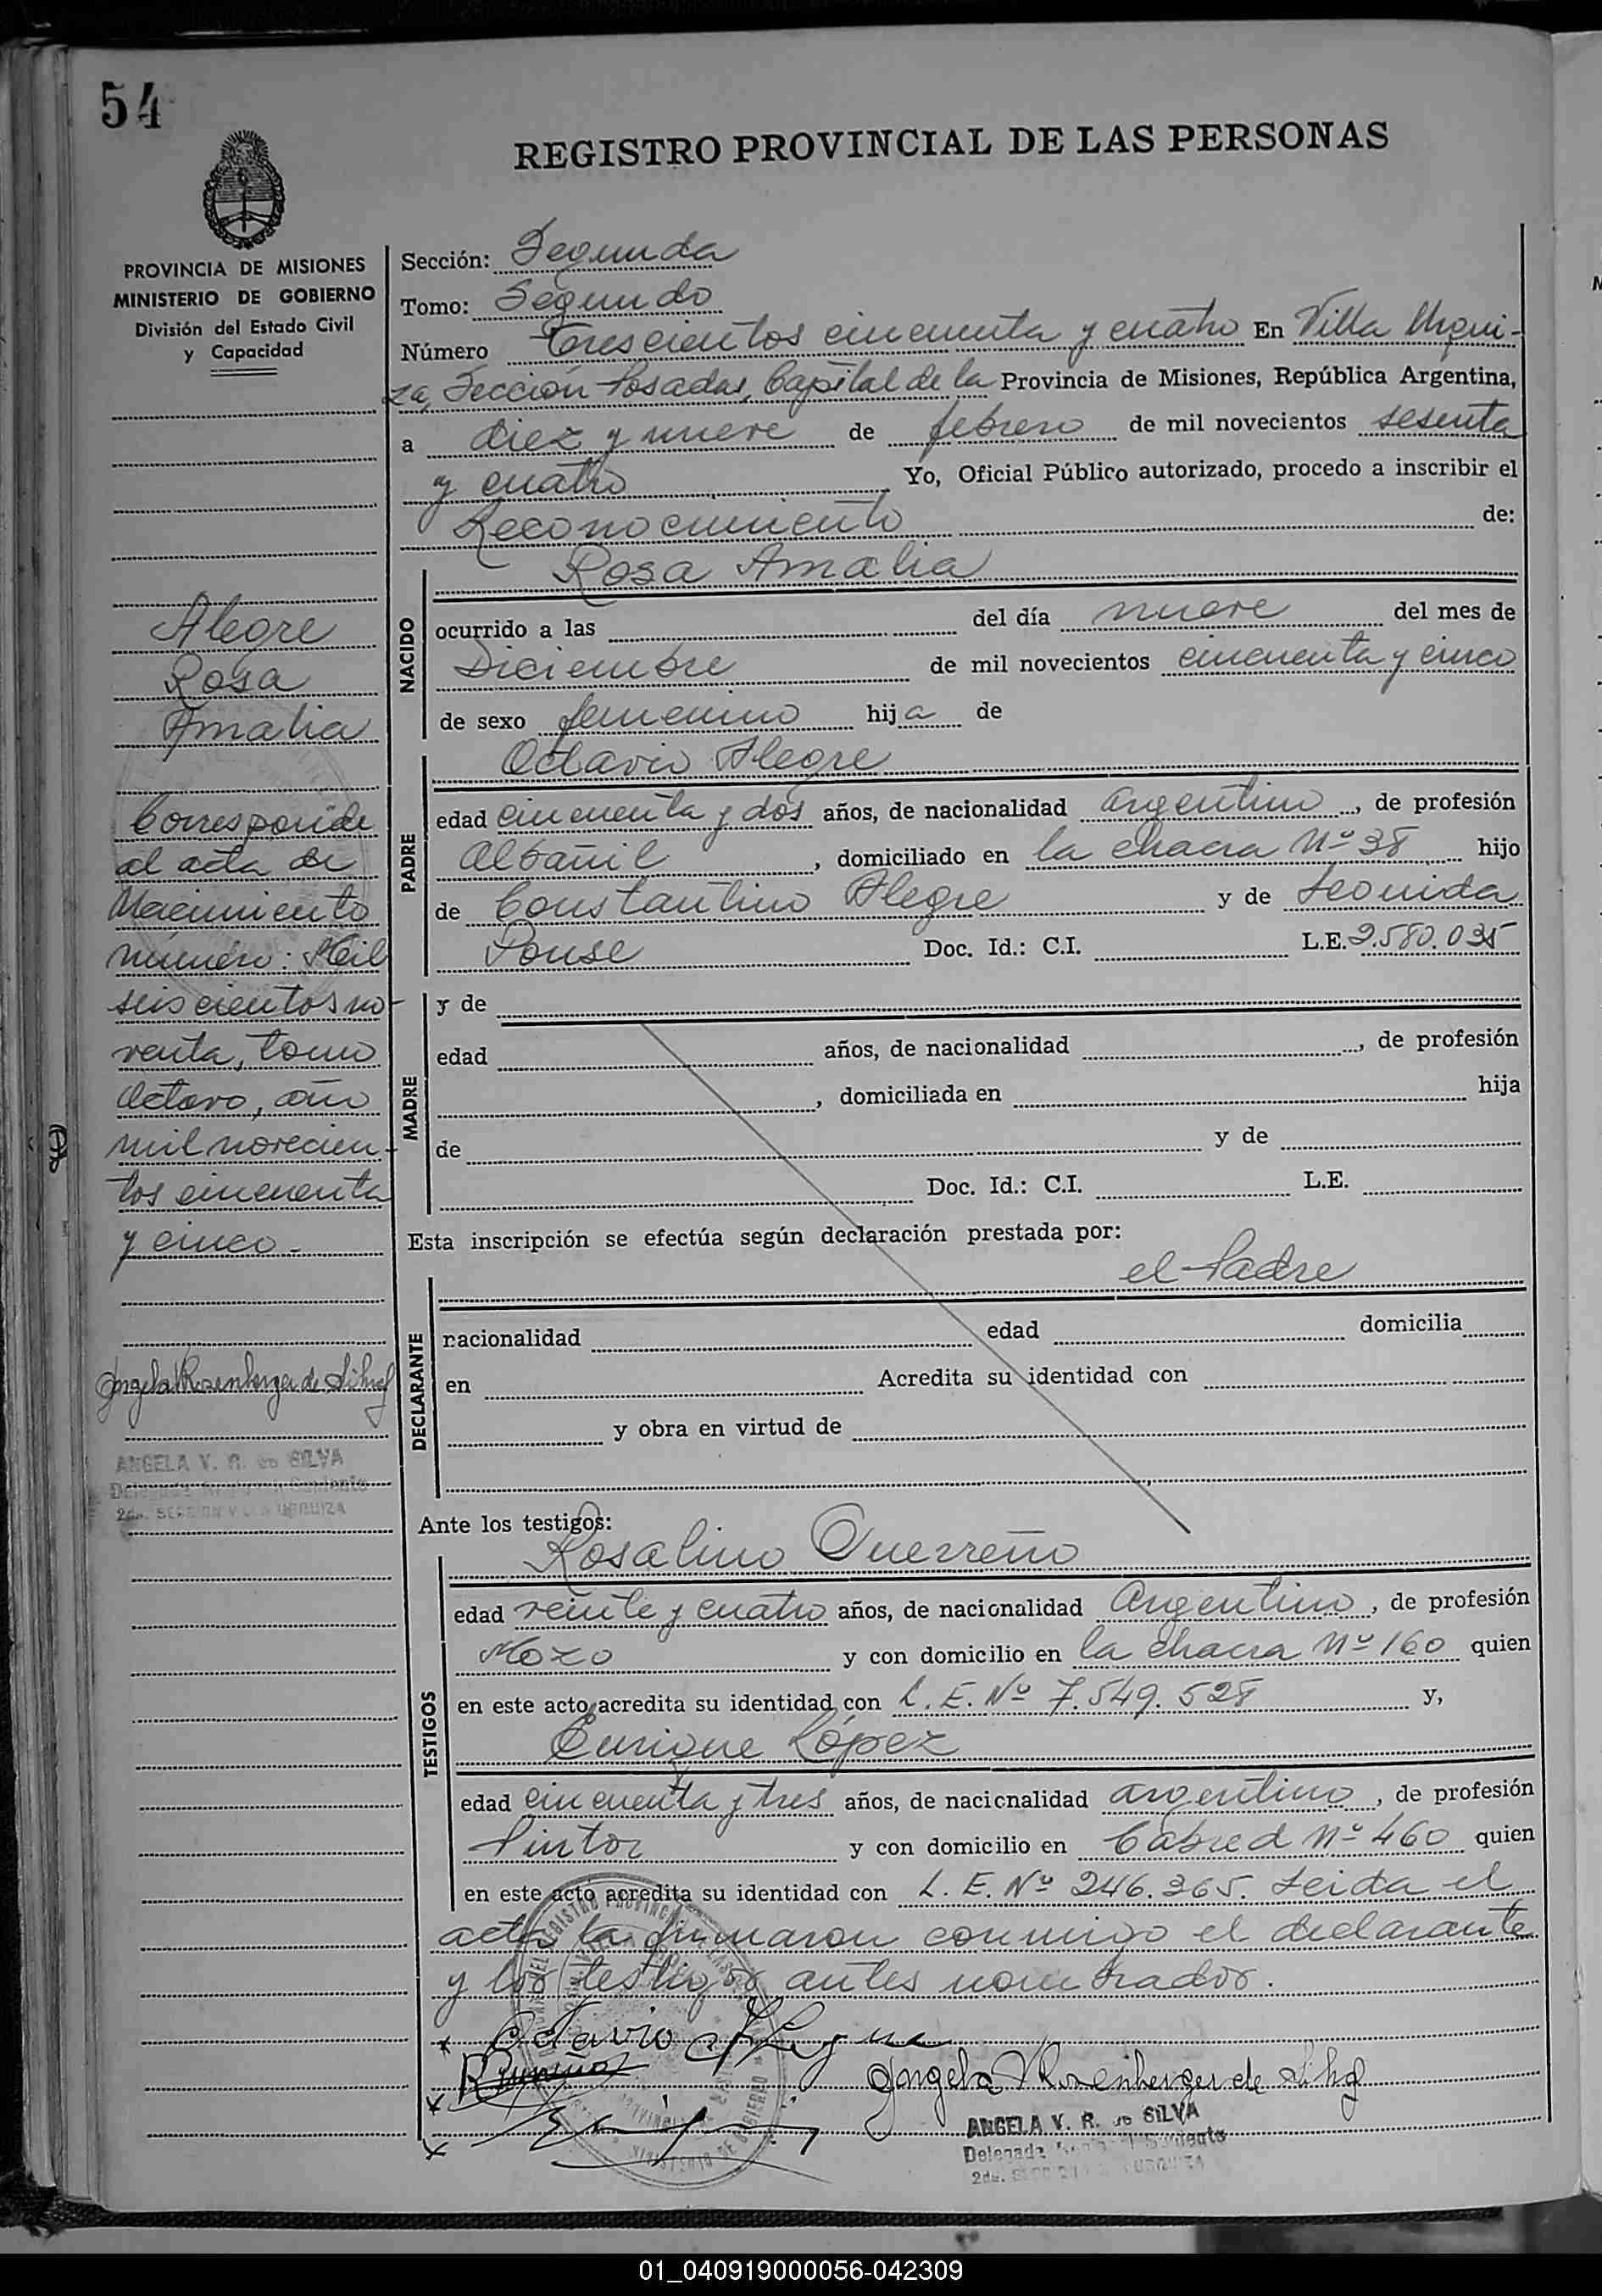 54
REGISTRO PROVINCIAL DE LAS PERSONAS
PROVINCIA DE MISIONES
MINISTERIO DE GOBIERNO
División del Estado Civil
y Capacidad
Alegre
Rosa
Amalia
Corresponde
al acta de
Nacimiento
número: Mil
seiscientos no-
venta, tomo
Octavo, año
mil novecien-
tos cincuenta
y cinco.
Angela Rosenberger de Silva
ANGELA V. R. de SILVA
Delegada Suplente
2da. SECCION VILLA URQUIZA
Sección: Segunda
Tomo: Segundo
Número Trescientos cincuenta y cuatro En Villa Urqui-
za, Sección Posadas, Capital de la Provincia de Misiones, República Argentina,
a diez y nueve de febrero de mil novecientos sesenta
y cuatro Yo, Oficial Público autorizado, procedo a inscribir el
Reconocimiento de:
NACIDO
Rosa Amalia
ocurrido a las del día nueve del mes de
Diciembre de mil novecientos cincuenta y cinco
de sexo femenino hija de
PADRE
Octavio Alegre
edad cincuenta y dos años, de nacionalidad Argentino, de profesión
Albañil, domiciliado en la chacra Nº 38 hijo
de Constantino Alegre y de Leonida
Ponse Doc. Id.: C.I. L.E. 2.580.035
MADRE
y de
edad años, de nacionalidad , de profesión
, domiciliada en hija
de y de
Doc. Id.: C.I. L.E.
Esta inscripción se efectúa según declaración prestada por:
el Padre
DECLARANTE
nacionalidad edad domicilia
en Acredita su identidad con
y obra en virtud de
Ante los testigos:
TESTIGOS
Rosalino
edad veinte y cuatro años, de nacionalidad Argentino, de profesión
Mozo y con domicilio en la chacra Nº 160 quien
en este acto acredita su identidad con L. E. Nº 7.549.528 y,
Enrique López
edad cincuenta y tres años, de nacionalidad argentino, de profesión
Pintor y con domicilio en Cabred Nº 460 quien
en este acto acredita su identidad con L. E. Nº 246.365. Leida el
acta la firmaron conmigo el declarante
y los testigos antes nombrados.
Octavio Alegre
Angela Rosenberger de Silva
ANGELA V. R. de SILVA
Delegada Suplente
2da. SECCION URQUIZA
01_040919000056-042309